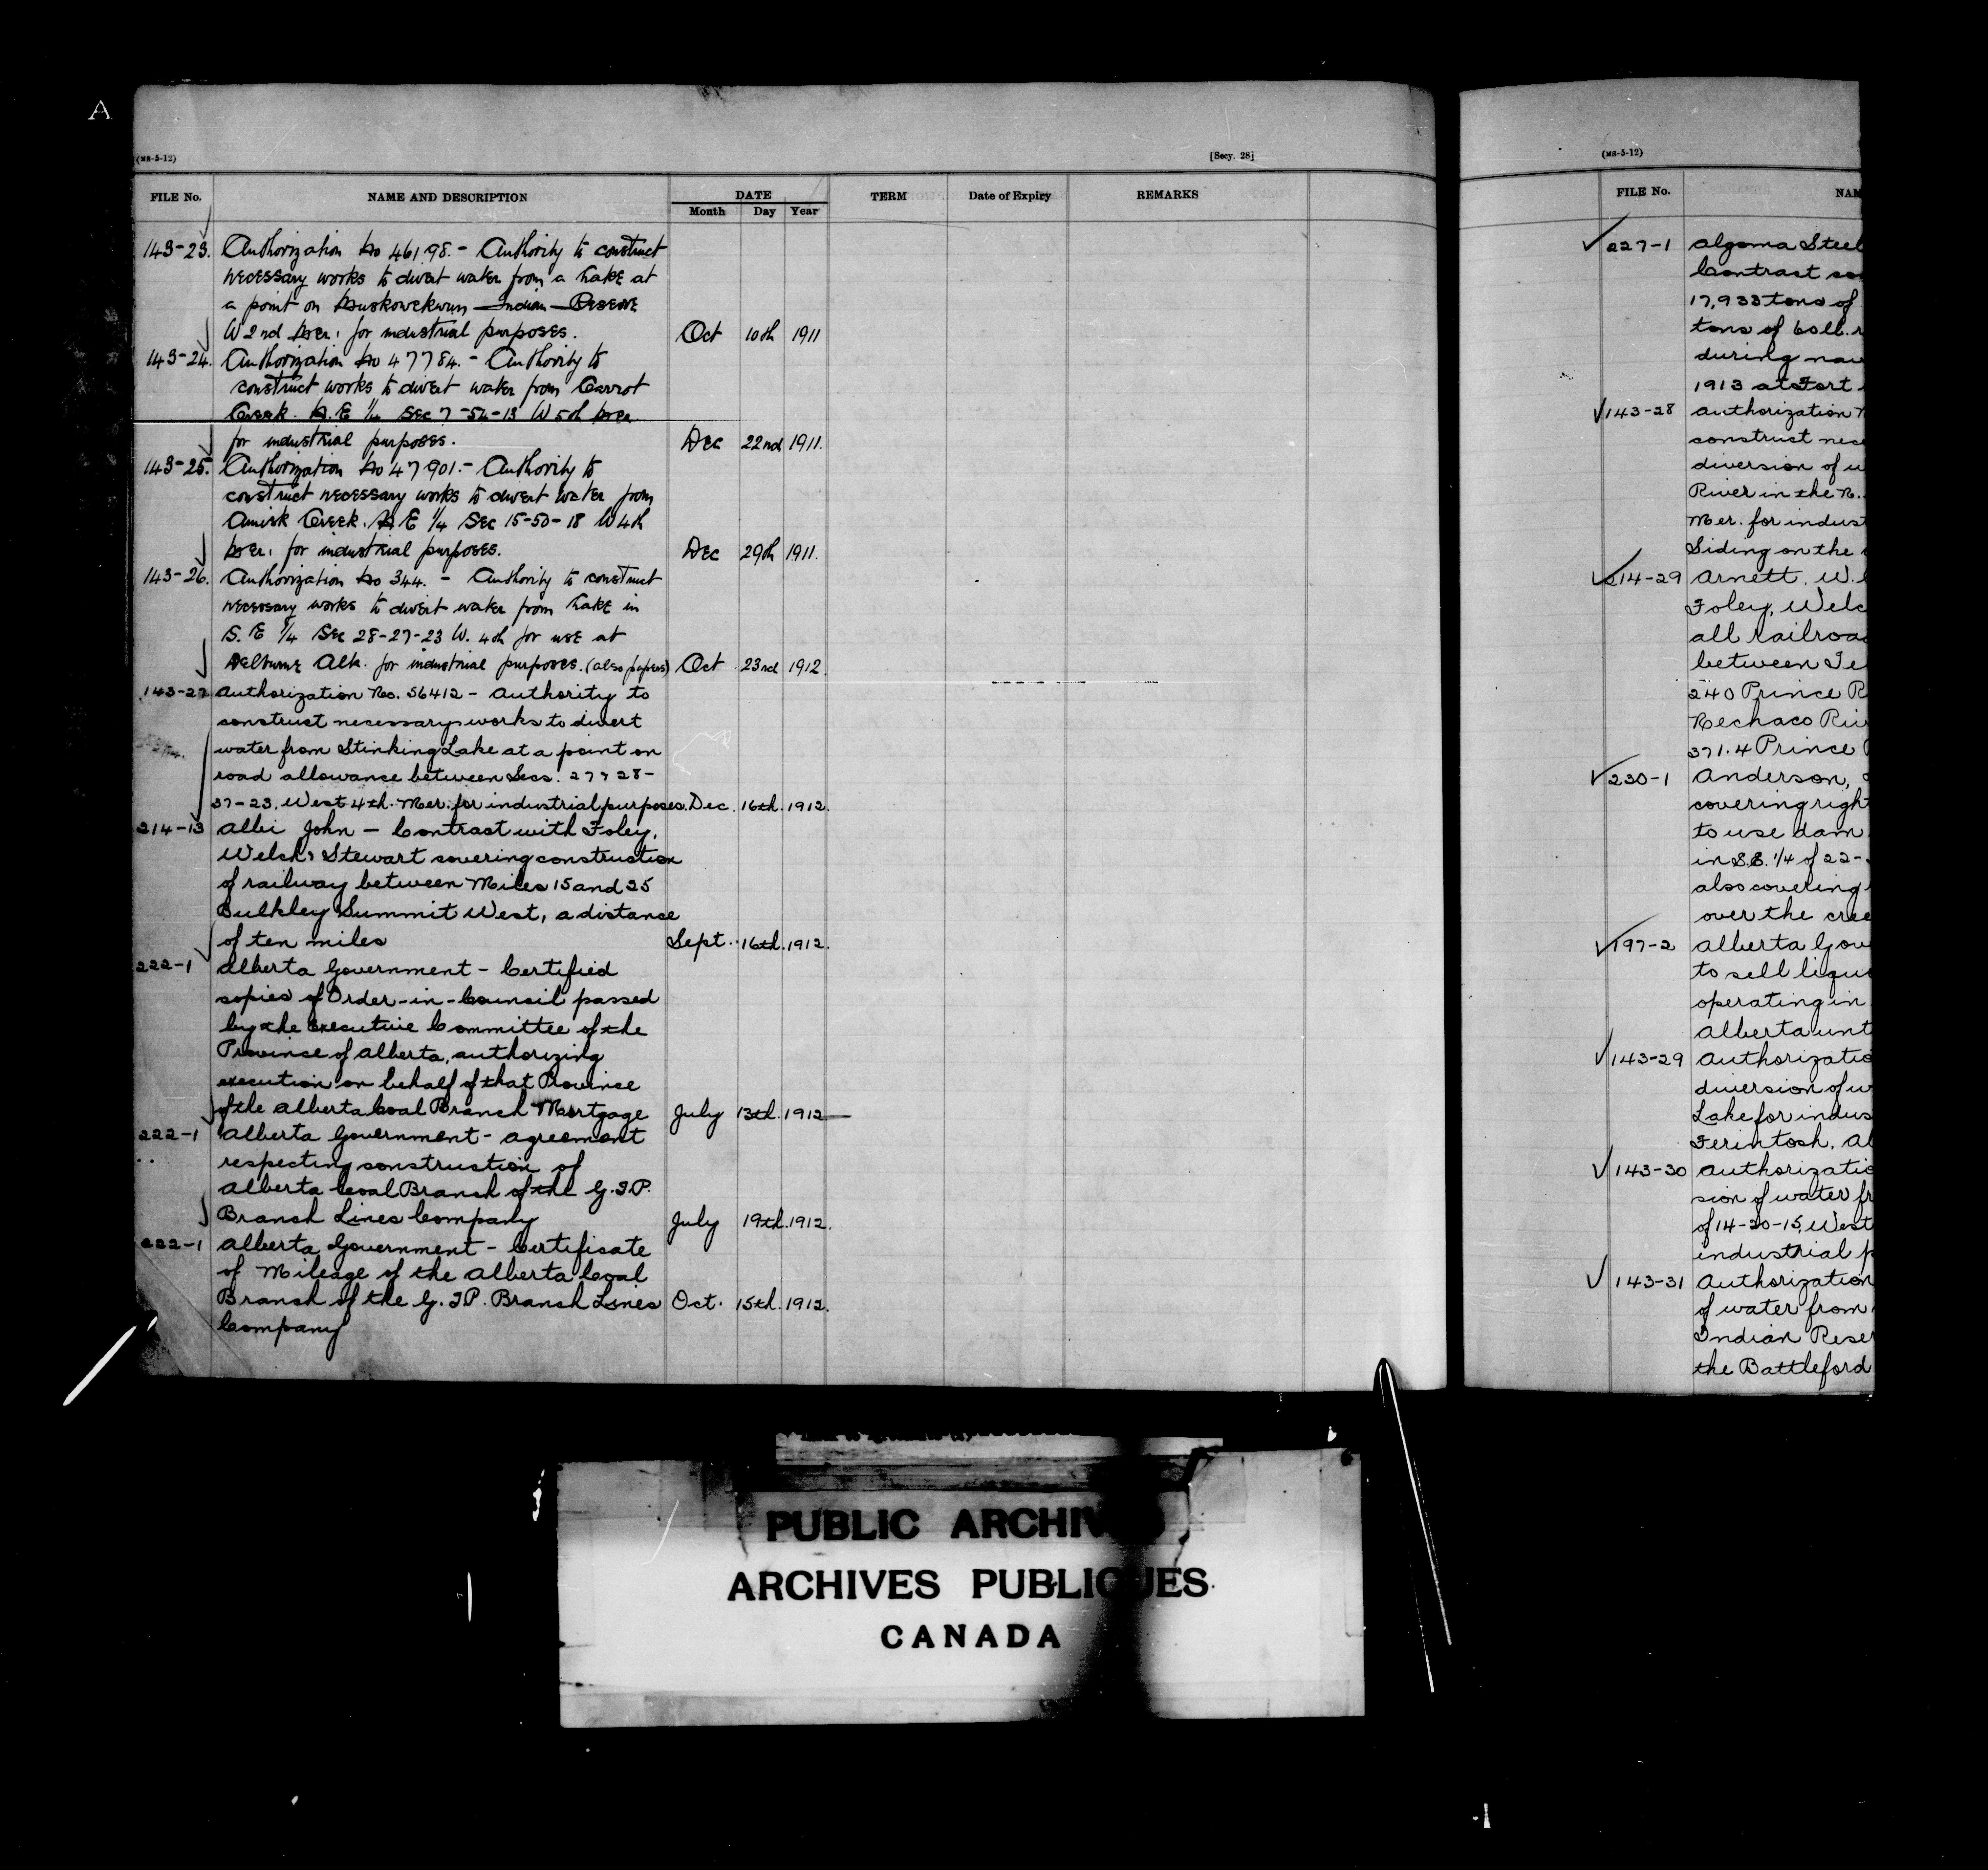 A
(MS-5-12)
[Secy. 28]
FILE No.
NAME AND DESCRIPTION
DATE
Month Day Year
TERM
Date of Expiry
REMARKS
143-23. Authorization No 46198. - Authority to construct
necessary works to divert water from a Lake at
a point on Muskowekwun Indian Reserve
W 2nd Mer. for industrial purposes. Oct 10th 1911
143-24. Authorization No 47784. - Authority to
construct works to divert water from Carrot
Creek. N.E 1/4 Sec 7-54-13 W 5th Mer
for industrial purposes. Dec 22nd 1911.
143-25. Authorization No 47901. - Authority to
construct necessary works to divert water from
Amisk Creek. N E 1/4 Sec 15-50-18 W 4th
Mer. for industrial purposes. Dec 29th 1911.
143-26. Authorization No 344. - Authority to construct
necessary works to divert water from Lake in
S. E 1/4 Sec 28-27-23 W. 4th for use at
Delburne Alta. for industrial purposes. (also papers) Oct 23rd 1912.
143-27 Authorization No. 56412 - Authority to
construct necessary works to divert
water from Stinking Lake at a point on
road allowance between Secs. 27 & 28-
37-23, West 4th. Mer. for industrial purposes. Dec. 16th. 1912.
214-13 Albi John - Contract with Foley,
Welch & Stewart covering construction
of railway between Miles 15 and 25
Bulkley Summit West, a distance
of ten miles Sept. 16th. 1912.
222-1 Alberta Government - Certified
copies of Order-in-Council passed
by the Executive Committee of the
Province of Alberta, authorizing
execution on behalf of that Province
of the Alberta Coal Branch Mortgage July 13th. 1912
222-1 Alberta Government - agreement
respecting construction of
Alberta Coal Branch of the G.T.P.
Branch Lines Company July 19th. 1912.
222-1 Alberta Government - Certificate
of Mileage of the Alberta Coal
Branch of the G.T.P. Branch Lines Oct. 15th. 1912.
Company
(MS-5-12)
FILE No. NAM
227-1 Algoma Steel
Contract
17,933 tons of
tons of 60 lb.
during nav
1913 at Fort
143-28 Authorization
construct nece
diversion of
River in the N.
Mer. for indust
Siding on the
214-29 Arnett, W.
Foley, Welc
all railroad
between Te
240 Prince R
Nechaco Riv
371.4 Prince
230-1 Anderson,
covering right
to use dam
in S.E. 1/4 of 22-
also covering
over the cree
197-2 Alberta Gov
to sell liquo
operating in
Alberta unt
143-29 Authorizatio
diversion of w
Lake for indus
Ferintosh, Al
143-30 Authorizatio
sion of water fr
of 14-20-15, West
industrial p
143-31 Authorization
of water from
Indian Rese
the Battleford
PUBLIC ARCHIVES
ARCHIVES PUBLIQUES
CANADA